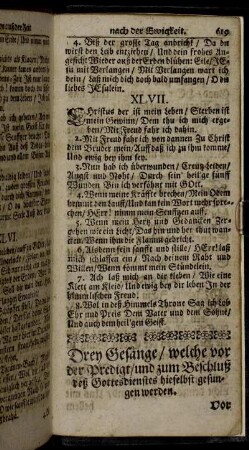 nach der Ewigkeit. 619
4. Biß der grosse Tag anbricht / Da du
wirst den Leib entziehen / Und dein frohes An-
gesicht Wieder aus der Erden blühen: Eile / JE-
su mit Verlangen / Mit Verlangen wart ich
dein / Laß mich dich noch bald umfangen / O du
liebes JEsulein.
XLVII.
CHristus der ist mein Leben / Sterben ist
mein Gewinn; Dem thu ich mich erge-
ben / Mit Freud fahr ich dahin.
2. Mit Freud fahr ich von dannen Zu Christ
dem Bruder mein / Auff daß ich zu ihm komme /
Und ewig bey ihm sey.
3. Nun hab ich überwunden / Creutz-leiden /
Angst und Noht / Durch sein' heilge fünff
Wunden Bin ich versühnt mit GOtt.
4. Wenn meine Kräffte brechen / Mein Odem
kömmt den hauff / Und kan kein Wort mehr spre-
chen / HErr! nimm mein Seuffzen auff.
5. Wenn mein Hertz und Gedancken Zer-
gehen wie ein Licht / Das hin und her thut wan-
cken / Wenn ihm die Flamm gebricht.
6. Alsdenn fein sanfft und stille / HErr! laß
mich schlaffen ein / Nach deinem Raht und
Willen / Wenn kömmt mein Stündelein.
7. Ach laß mich an dir kleben / Wie eine
Klett am Kleid / Und ewig bey dir leben In der
himmlischen Freud;
8. Wol in deß Himmels Throne Sag ich Lob
Ehr und Preis Dem Vater und dem Sohne /
Und auch dem heilgen Geist.
Drey Gesänge / welche vor
der Predigt / und zum Beschluß
deß Gottesdiensts hieselbst gesun-
gen werden.
Vor